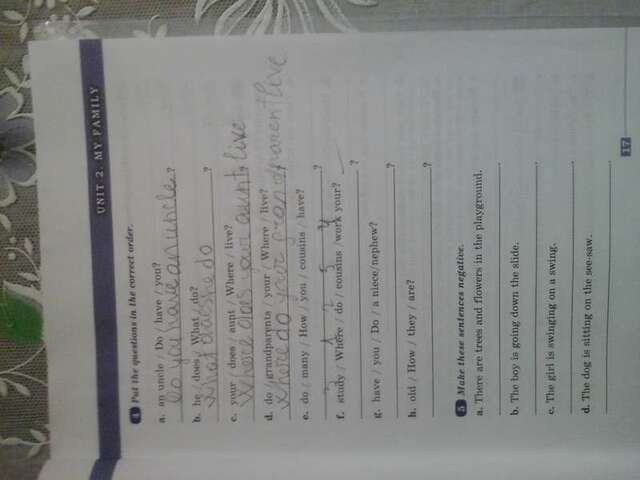 UNIT 2. MY FAMILY
4 Put the questions in the correct order.
a. an uncle / Do / have / you?
Do you have an uncle ?
b. he / does / What / do?
What does he do ?
c. your / does / aunt / Where / live?
Where does your aunt live
d. do / grandparents / your / Where / live?
Where do your grandparent live
e. do / many / How / you / cousins / have?
?
f. study / Where / do / cousins / work your?
?
g. have / you / Do / a niece/nephew?
?
h. old / How / they / are?
?
5 Make these sentences negative.
a. There are trees and flowers in the playground.
b. The boy is going down the slide.
c. The girl is swinging on a swing.
d. The dog is sitting on the see-saw.
17